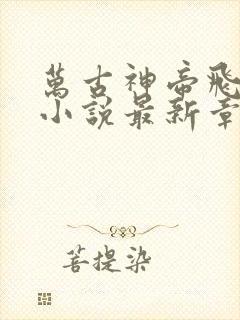 萬古神帝飛
小說最新章
菩提染